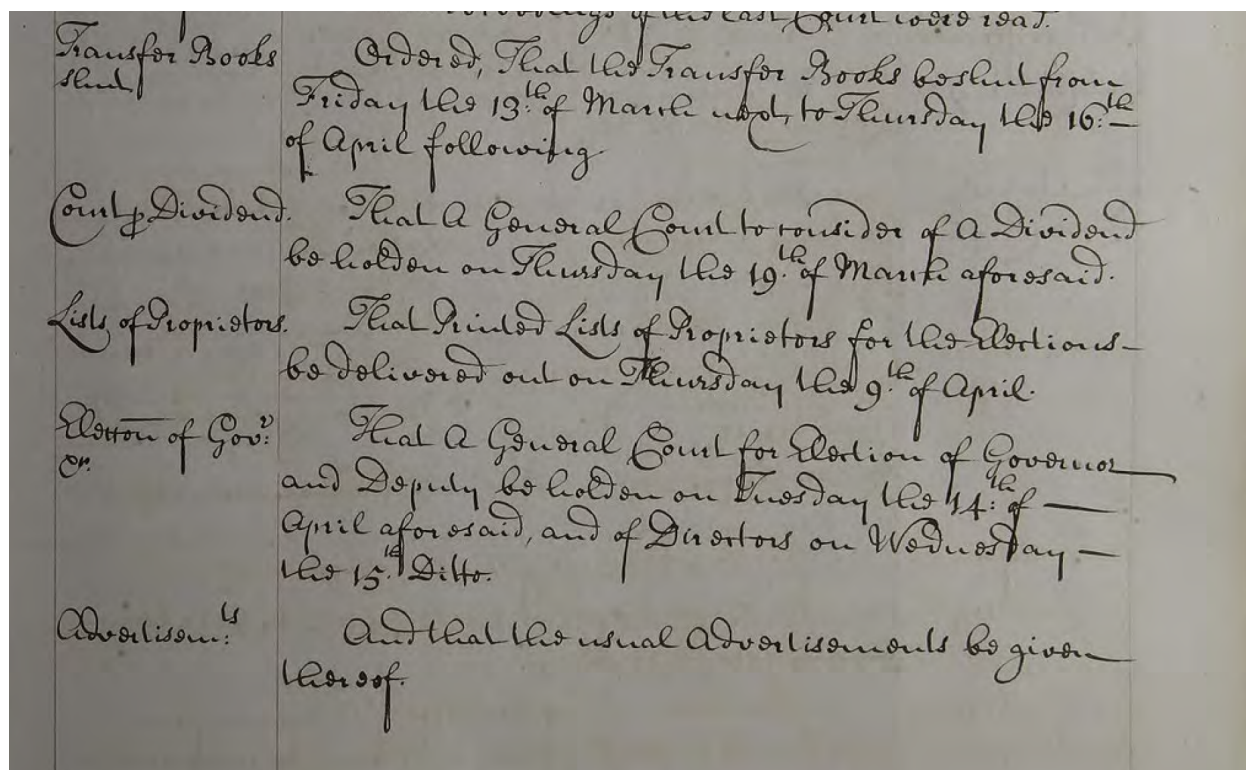 of the last Court were read.
Transfer Books
shut
Ordered, That the Transfer Books be shut from
Friday the 13.th of March next, to Thursday the 16.th
of April following.
Court p Dividend.
That A General Court to consider of A Dividend
be holden on Thursday the 19.th of March aforesaid.
Lists of Proprietors.
That Printed Lists of Proprietors for the Elections
be delivered out on Thursday the 9.th of April.
Election of Gov.r
&c.
That A General Court for Election of Governor
and Deputy be holden on Tuesday the 14.th of
April aforesaid, and of Directors on Wednesday
the 15.th Ditto.
Advertisem.ts
And that the usual Advertisements be given
thereof.